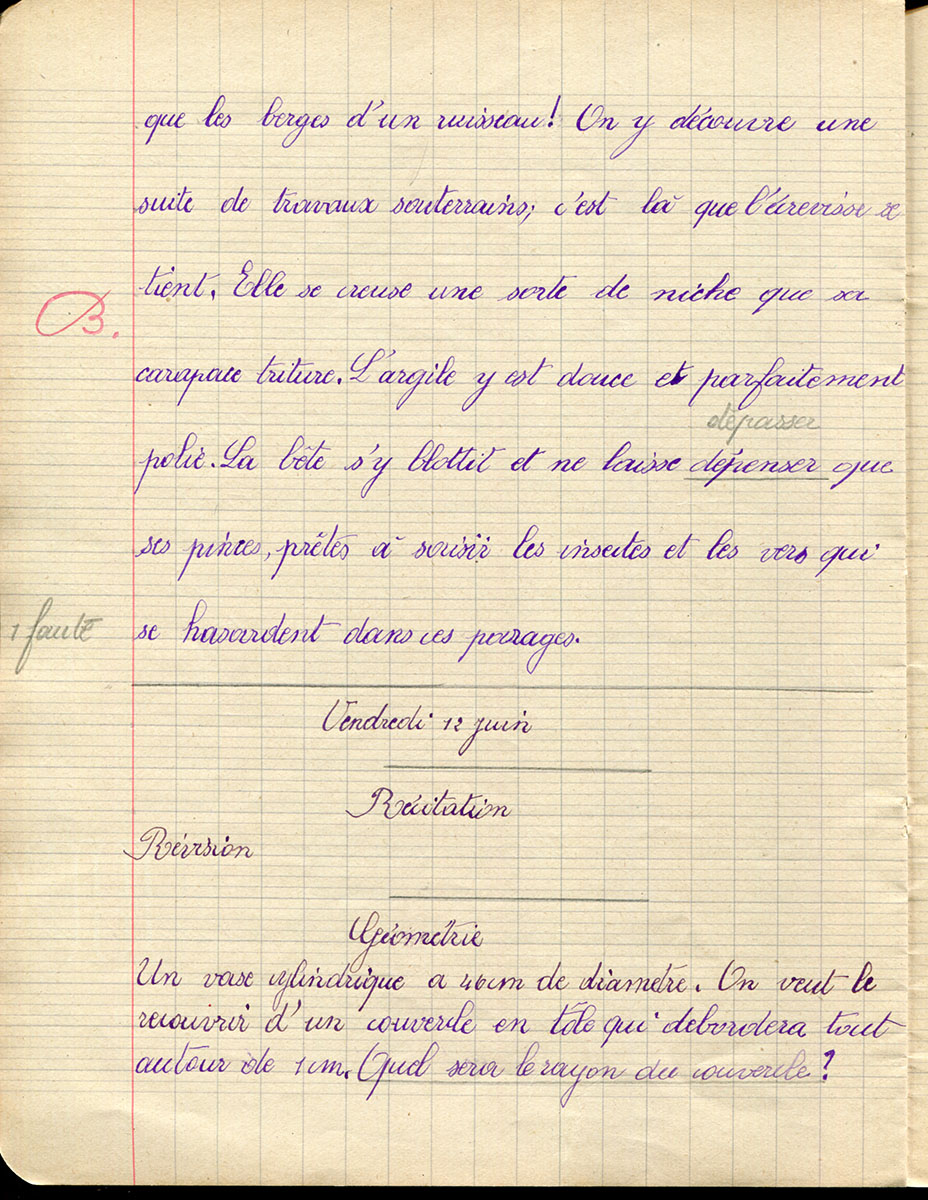 que les berges d'un ruisseau! On y découvre une
suite de travaux souterrains; c'est là que l'écrevisse se
tient. Elle se creuse une sorte de niche que sa
B.
carapace triture. L'argile y est douce et parfaitement
dépasser
polie. La bête s'y blottit et ne laisse dépenser que
ses pinces, prêtes à saisir les insectes et les vers qui
1 faute
se hasardent dans ces parages.
Vendredi 12 juin
Récitation
Révision
Géométrie
Un vase cylindrique a 46cm de diamètre. On veut le
recouvrir d'un couvercle en tôle qui debordera tout
autour de 1 cm. Quel sera le rayon du couvercle?